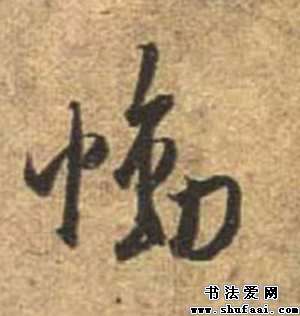 慟
书法爱网
www.shufaai.com